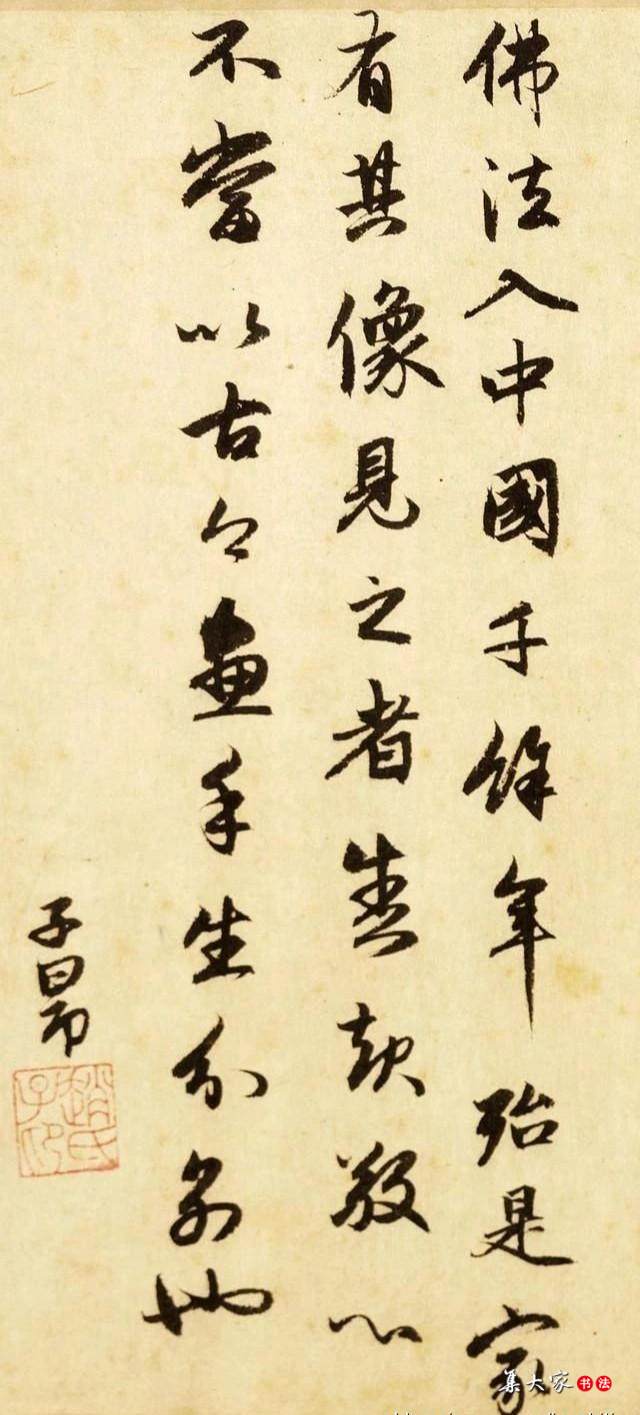 佛法入中國千餘年殆是家
有其像見之者善起敬心
不當以古今畫手生分別也
子昂
趙氏子昂
集大家书法